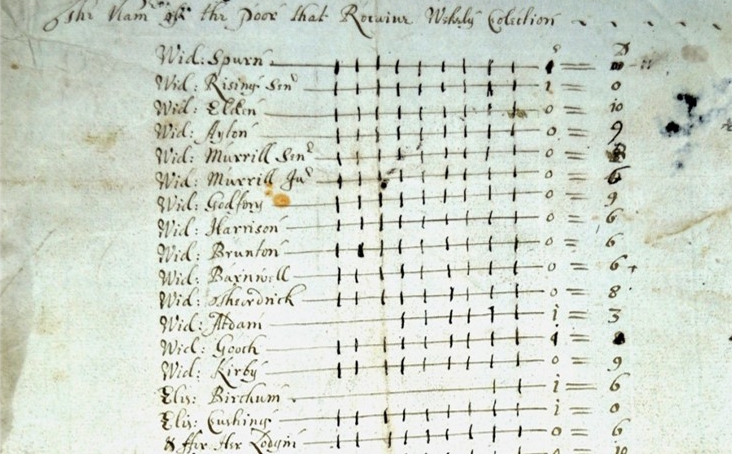 The Nam of the Poor that Receive Wekely Colection
s D
Wid: Spurn
Wid: Rising Sen 1 = 0
Wid: Elden 0 = 10
Wid: Aylen 0 = 9
Wid: Murrill Sen 0 =
Wid: Murrill Ju 0 = 6
Wid: Godfory 0 = 9
Wid: Harrison 0 = 6
Wid: Brunton 0 = 6
Wid: Barnwell 0 = 6
Wid: Sheardrick 0 = 8
Wid: Adam 1 = 3
Wid: Gooch
Wid: Kirby 0 = 9
Elis: Birchum 1 = 6
Elis: Cushing 1 = 0
& ffor Her Lodgin 0 = 6
10